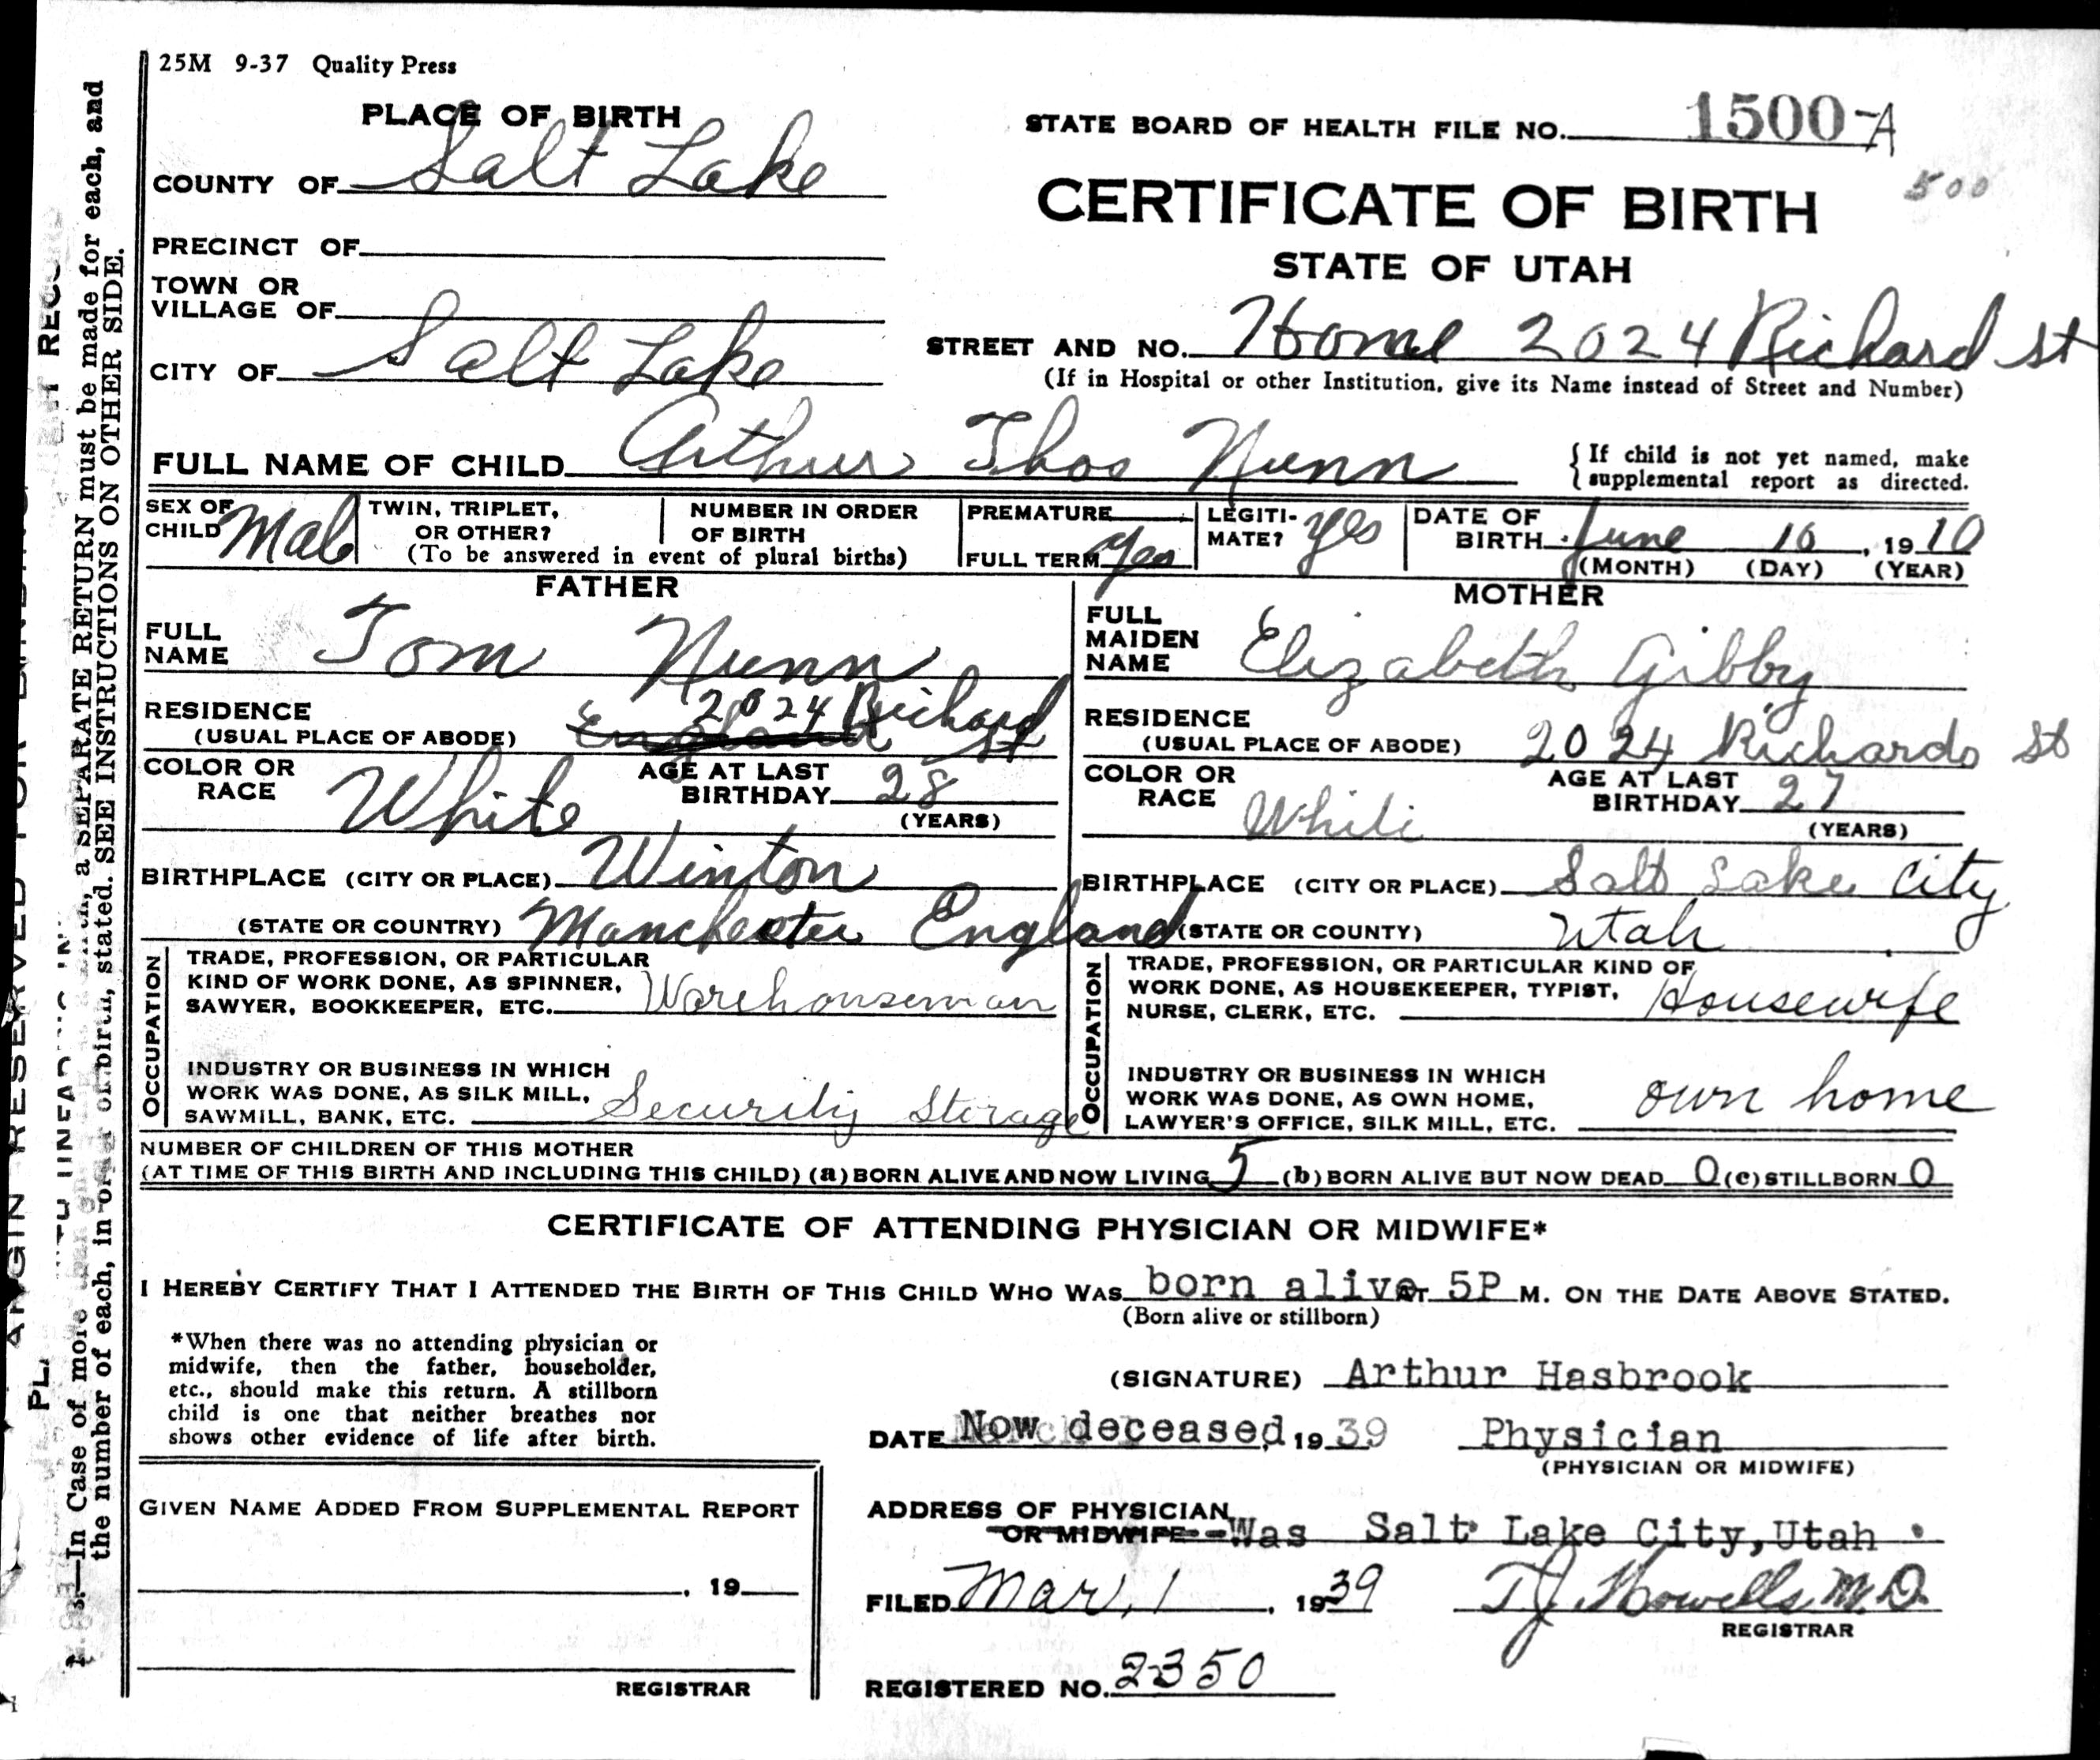 25M 9-37 Quality Press
PLACE OF BIRTH
COUNTY OF Salt Lake
PRECINCT OF
TOWN OR
VILLAGE OF
CITY OF Salt Lake
STATE BOARD OF HEALTH FILE NO. 1500-A
500
CERTIFICATE OF BIRTH
STATE OF UTAH
STREET AND NO. Home 2024 Richard st
(If in Hospital or other Institution, give its Name instead of Street and Number)
FULL NAME OF CHILD Arthur Thos Nunn
{ If child is not yet named, make
{ supplemental report as directed.
SEX OF
CHILD Male
TWIN, TRIPLET,
OR OTHER?
NUMBER IN ORDER
OF BIRTH
(To be answered in event of plural births)
PREMATURE
FULL TERM Yes
LEGITI-
MATE? Yes
DATE OF
BIRTH June 16, 1910
(MONTH) (DAY) (YEAR)
FATHER
FULL
NAME Tom Nunn
RESIDENCE 2024 Richard
(USUAL PLACE OF ABODE) England st
COLOR OR
RACE White
AGE AT LAST
BIRTHDAY 28
(YEARS)
BIRTHPLACE (CITY OR PLACE) Winton
(STATE OR COUNTRY) Manchester England
OCCUPATION
TRADE, PROFESSION, OR PARTICULAR
KIND OF WORK DONE, AS SPINNER,
SAWYER, BOOKKEEPER, ETC. Warehouseman
INDUSTRY OR BUSINESS IN WHICH
WORK WAS DONE, AS SILK MILL,
SAWMILL, BANK, ETC. Security Storage
MOTHER
FULL
MAIDEN
NAME Elizabeth Gibby
RESIDENCE
(USUAL PLACE OF ABODE) 2024 Richards st
COLOR OR
RACE White
AGE AT LAST
BIRTHDAY 27
(YEARS)
BIRTHPLACE (CITY OR PLACE) Salt Lake City
(STATE OR COUNTY) Utah
OCCUPATION
TRADE, PROFESSION, OR PARTICULAR KIND OF
WORK DONE, AS HOUSEKEEPER, TYPIST,
NURSE, CLERK, ETC. Housewife
INDUSTRY OR BUSINESS IN WHICH
WORK WAS DONE, AS OWN HOME,
LAWYER'S OFFICE, SILK MILL, ETC. own home
NUMBER OF CHILDREN OF THIS MOTHER
(AT TIME OF THIS BIRTH AND INCLUDING THIS CHILD) (a) BORN ALIVE AND NOW LIVING 5 (b) BORN ALIVE BUT NOW DEAD 0 (c) STILLBORN 0
CERTIFICATE OF ATTENDING PHYSICIAN OR MIDWIFE*
I HEREBY CERTIFY THAT I ATTENDED THE BIRTH OF THIS CHILD WHO WAS born alive AT 5P M. ON THE DATE ABOVE STATED.
(Born alive or stillborn)
*When there was no attending physician or
midwife, then the father, householder,
etc., should make this return. A stillborn
child is one that neither breathes nor
shows other evidence of life after birth.
(SIGNATURE) Arthur Hasbrook
DATE Now deceased, 1939 Physician
(PHYSICIAN OR MIDWIFE)
GIVEN NAME ADDED FROM SUPPLEMENTAL REPORT
, 19
REGISTRAR
ADDRESS OF PHYSICIAN
OR MIDWIFE Was Salt Lake City, Utah
FILED Mar, 1, 1939 T J Howells M.D.
REGISTRAR
REGISTERED NO. 2350
—In Case of more a SEPARATE RETURN must be made for each, and
the number of each, in of birth, stated. SEE INSTRUCTIONS ON OTHER SIDE.